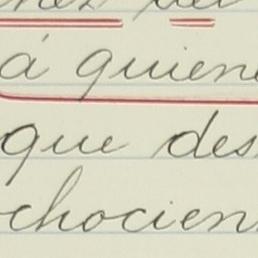 á quiene
que des
chocien